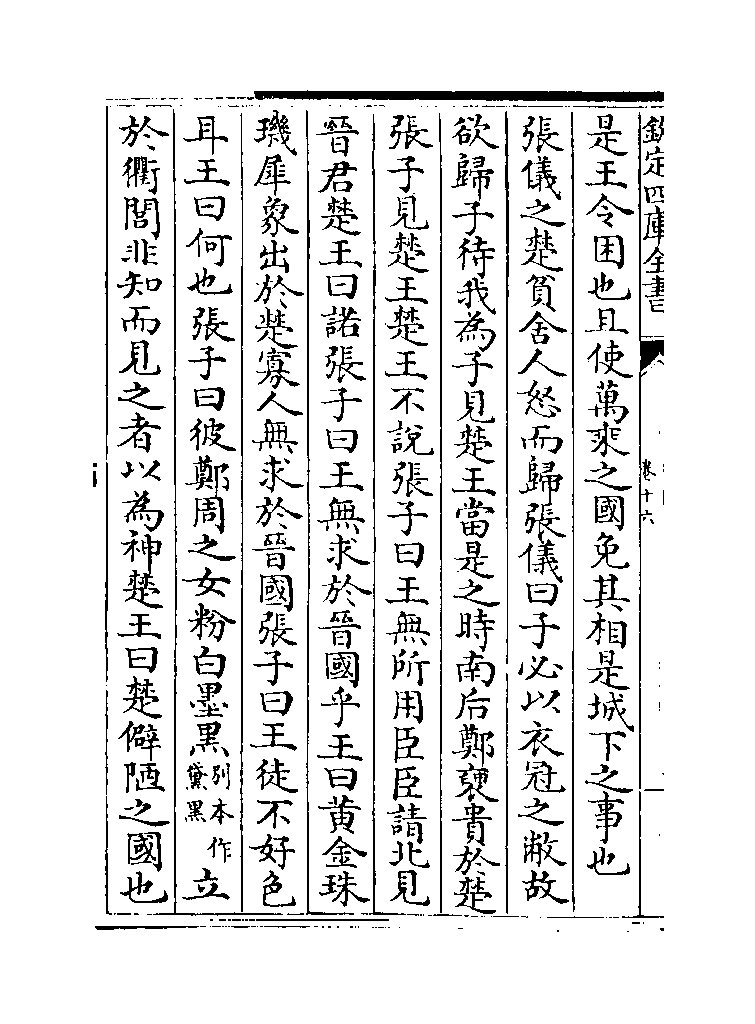 欽定四庫全書
卷十六
是王令困也且使萬乘之國免其相是城下之事也
張儀之楚貧舍人怒而歸張儀曰子必以衣冠之敝故
欲歸子待我為子見楚王當是之時南后鄭褎貴於楚
張子見楚王楚王不說張子曰王無所用臣臣請北見
晉君楚王曰諾張子曰王無求於晉國乎王曰黃金珠
璣犀象出於楚寡人無求於晉國張子曰王徒不好色
耳王曰何也張子曰彼鄭周之女粉白墨黑別本作黛黑立
於衢閭非知而見之者以為神楚王曰楚僻陋之國也